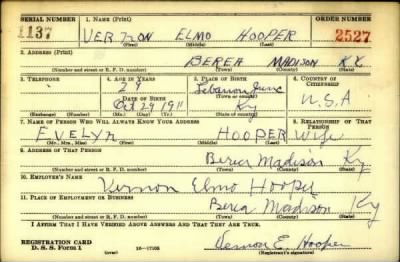 SERIAL NUMBER 1. NAME (Print) ORDER NUMBER
1137 VERNON ELMO HOOPER 2527
(First) (Middle) (Last)
2. ADDRESS (Print)
BEREA MADISON KY.
(Number and street or R. F. D. number) (Town) (County) (State)
3. TELEPHONE 4. AGE IN YEARS 5. PLACE OF BIRTH 6. COUNTRY OF CITIZENSHIP
29 Lebanon Junc
DATE OF BIRTH (Town or county)
Oct 29 1911 Ky U.S.A
(Exchange) (Number) (Mo.) (Day) (Yr.) (State or country)
7. NAME OF PERSON WHO WILL ALWAYS KNOW YOUR ADDRESS 8. RELATIONSHIP OF THAT PERSON
EVELYN HOOPER Wife
(Mr., Mrs., Miss) (First) (Middle) (Last)
9. ADDRESS OF THAT PERSON
Berea Madison Ky
(Number and street or R. F. D. number) (Town) (County) (State)
10. EMPLOYER'S NAME
Vernon Elmo Hooper
11. PLACE OF EMPLOYMENT OR BUSINESS
Berea Madison Ky
(Number and street or R. F. D. number) (Town) (County) (State)
I AFFIRM THAT I HAVE VERIFIED ABOVE ANSWERS AND THAT THEY ARE TRUE.
REGISTRATION CARD
D. S. S. Form 1 (over) Vernon E. Hooper
(Registrant's signature)